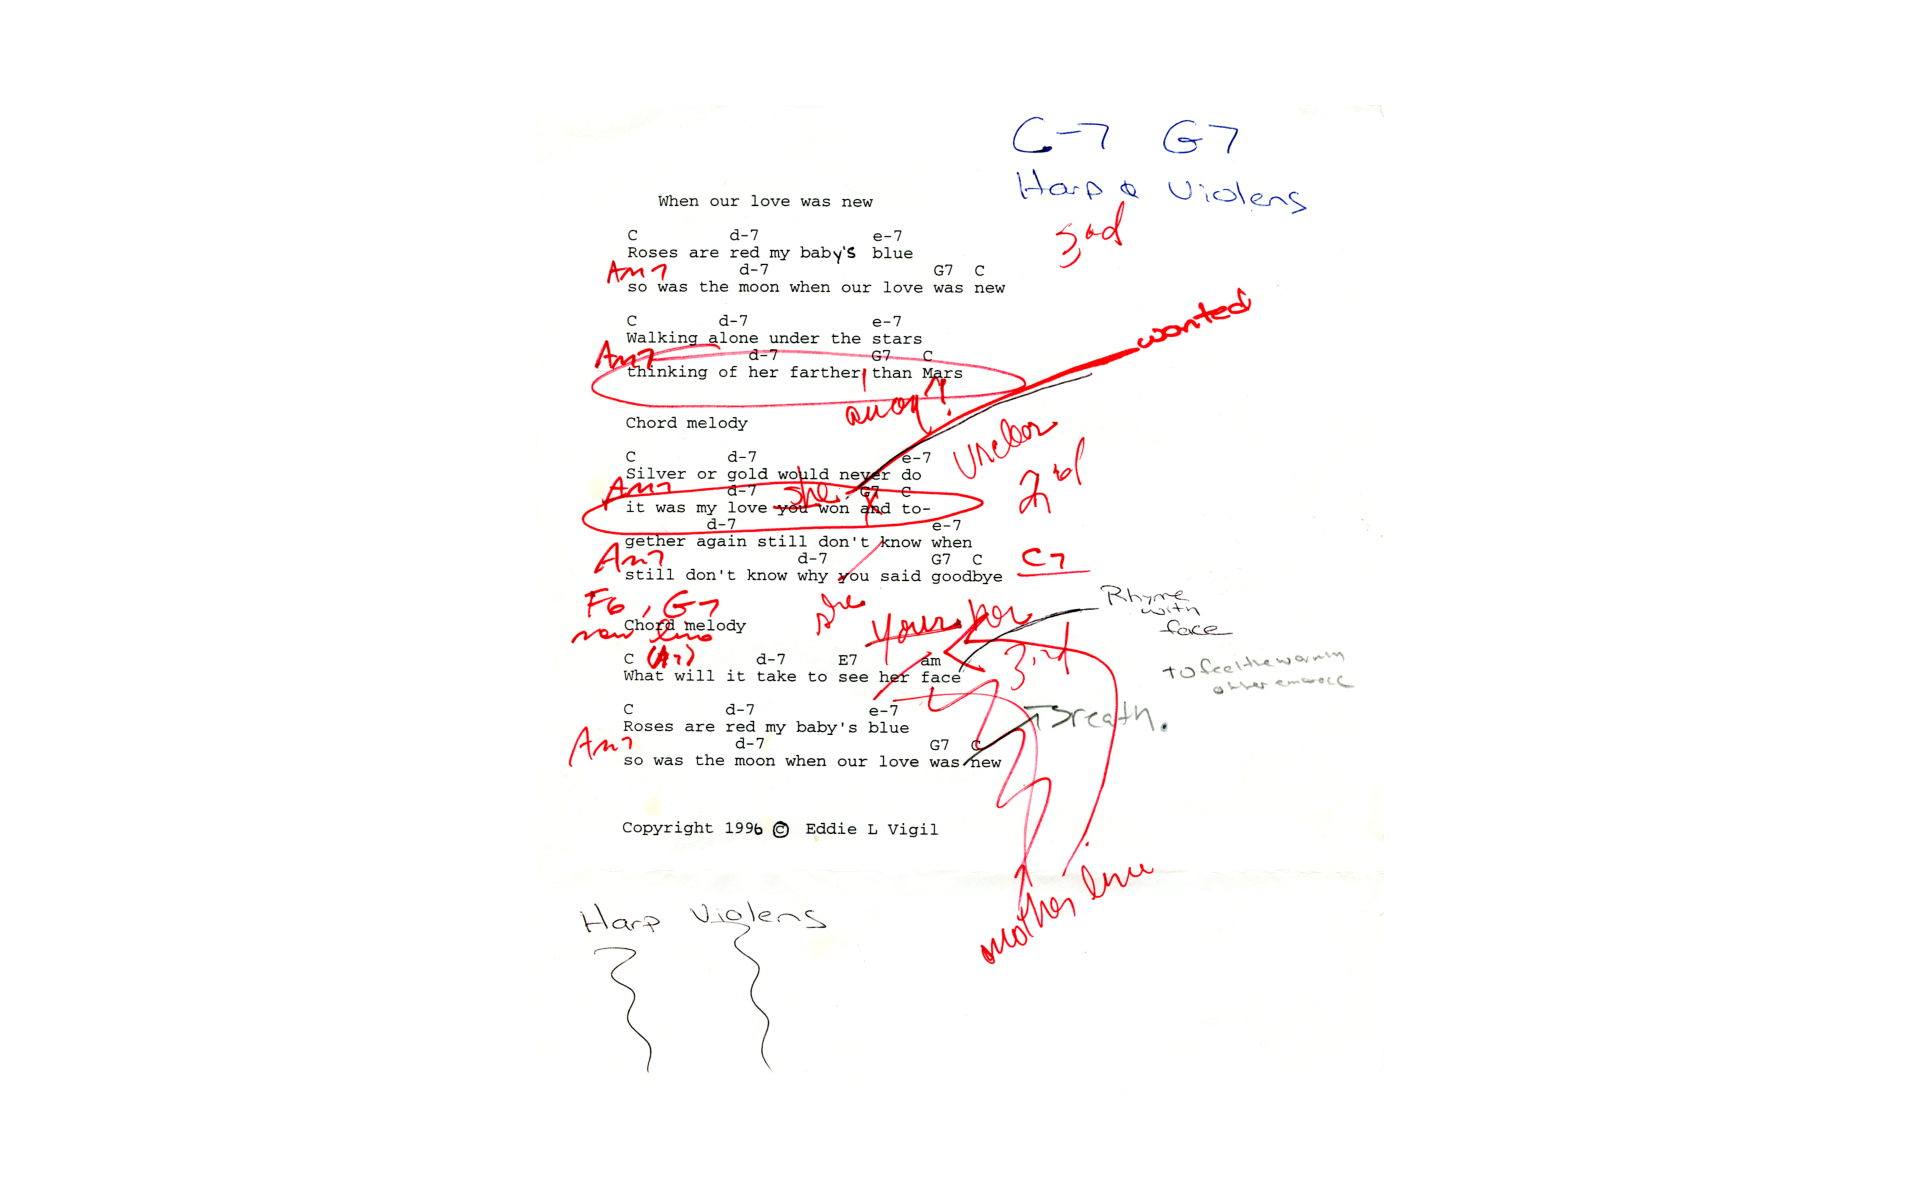 C-7 G7
Harp & Violens
3rd
When our love was new
C d-7 e-7
Roses are red my baby's blue
Am7 d-7 G7 C
so was the moon when our love was new
wanted
C d-7 e-7
Walking alone under the stars
Am7 d-7 G7 C
thinking of her farther than Mars
away?
Chord melody
Unclear
C d-7 e-7
Silver or gold would never do
2nd
Am7 d-7 she G7 C
it was my love you won and to-
d-7 e-7
gether again still don't know when
Am7 d-7 G7 C C7
still don't know why you said goodbye
she
F6, G7
new line
Chord melody
your her
Rhyme
with
face
3rd
C (A7) d-7 E7 am
What will it take to see her face
to feel the warmth
of her embrace
C d-7 e-7
Roses are red my baby's blue
Breath.
Am7 d-7 G7 C
so was the moon when our love was new
Copyright 1996 © Eddie L Vigil
another line
Harp Violens